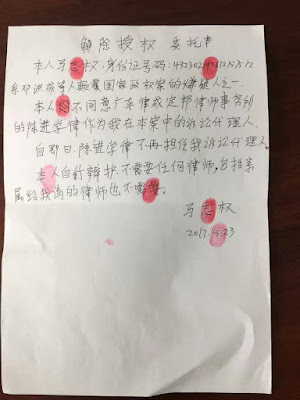 解除授权委托书
本人马志权,身份证号码:432302
系邓洪成等人颠覆国家政权案的嫌疑人之一.
本人因不同意广东律成定邦律师事务所
的陈进学律作为我在本案中的诉讼代理人.
自即日,陈进学律不再担任我诉讼代理人.
本人自行辩护不需要任何律师,包括亲
属给我请的律师也不需要.
马志权
2017.5.23